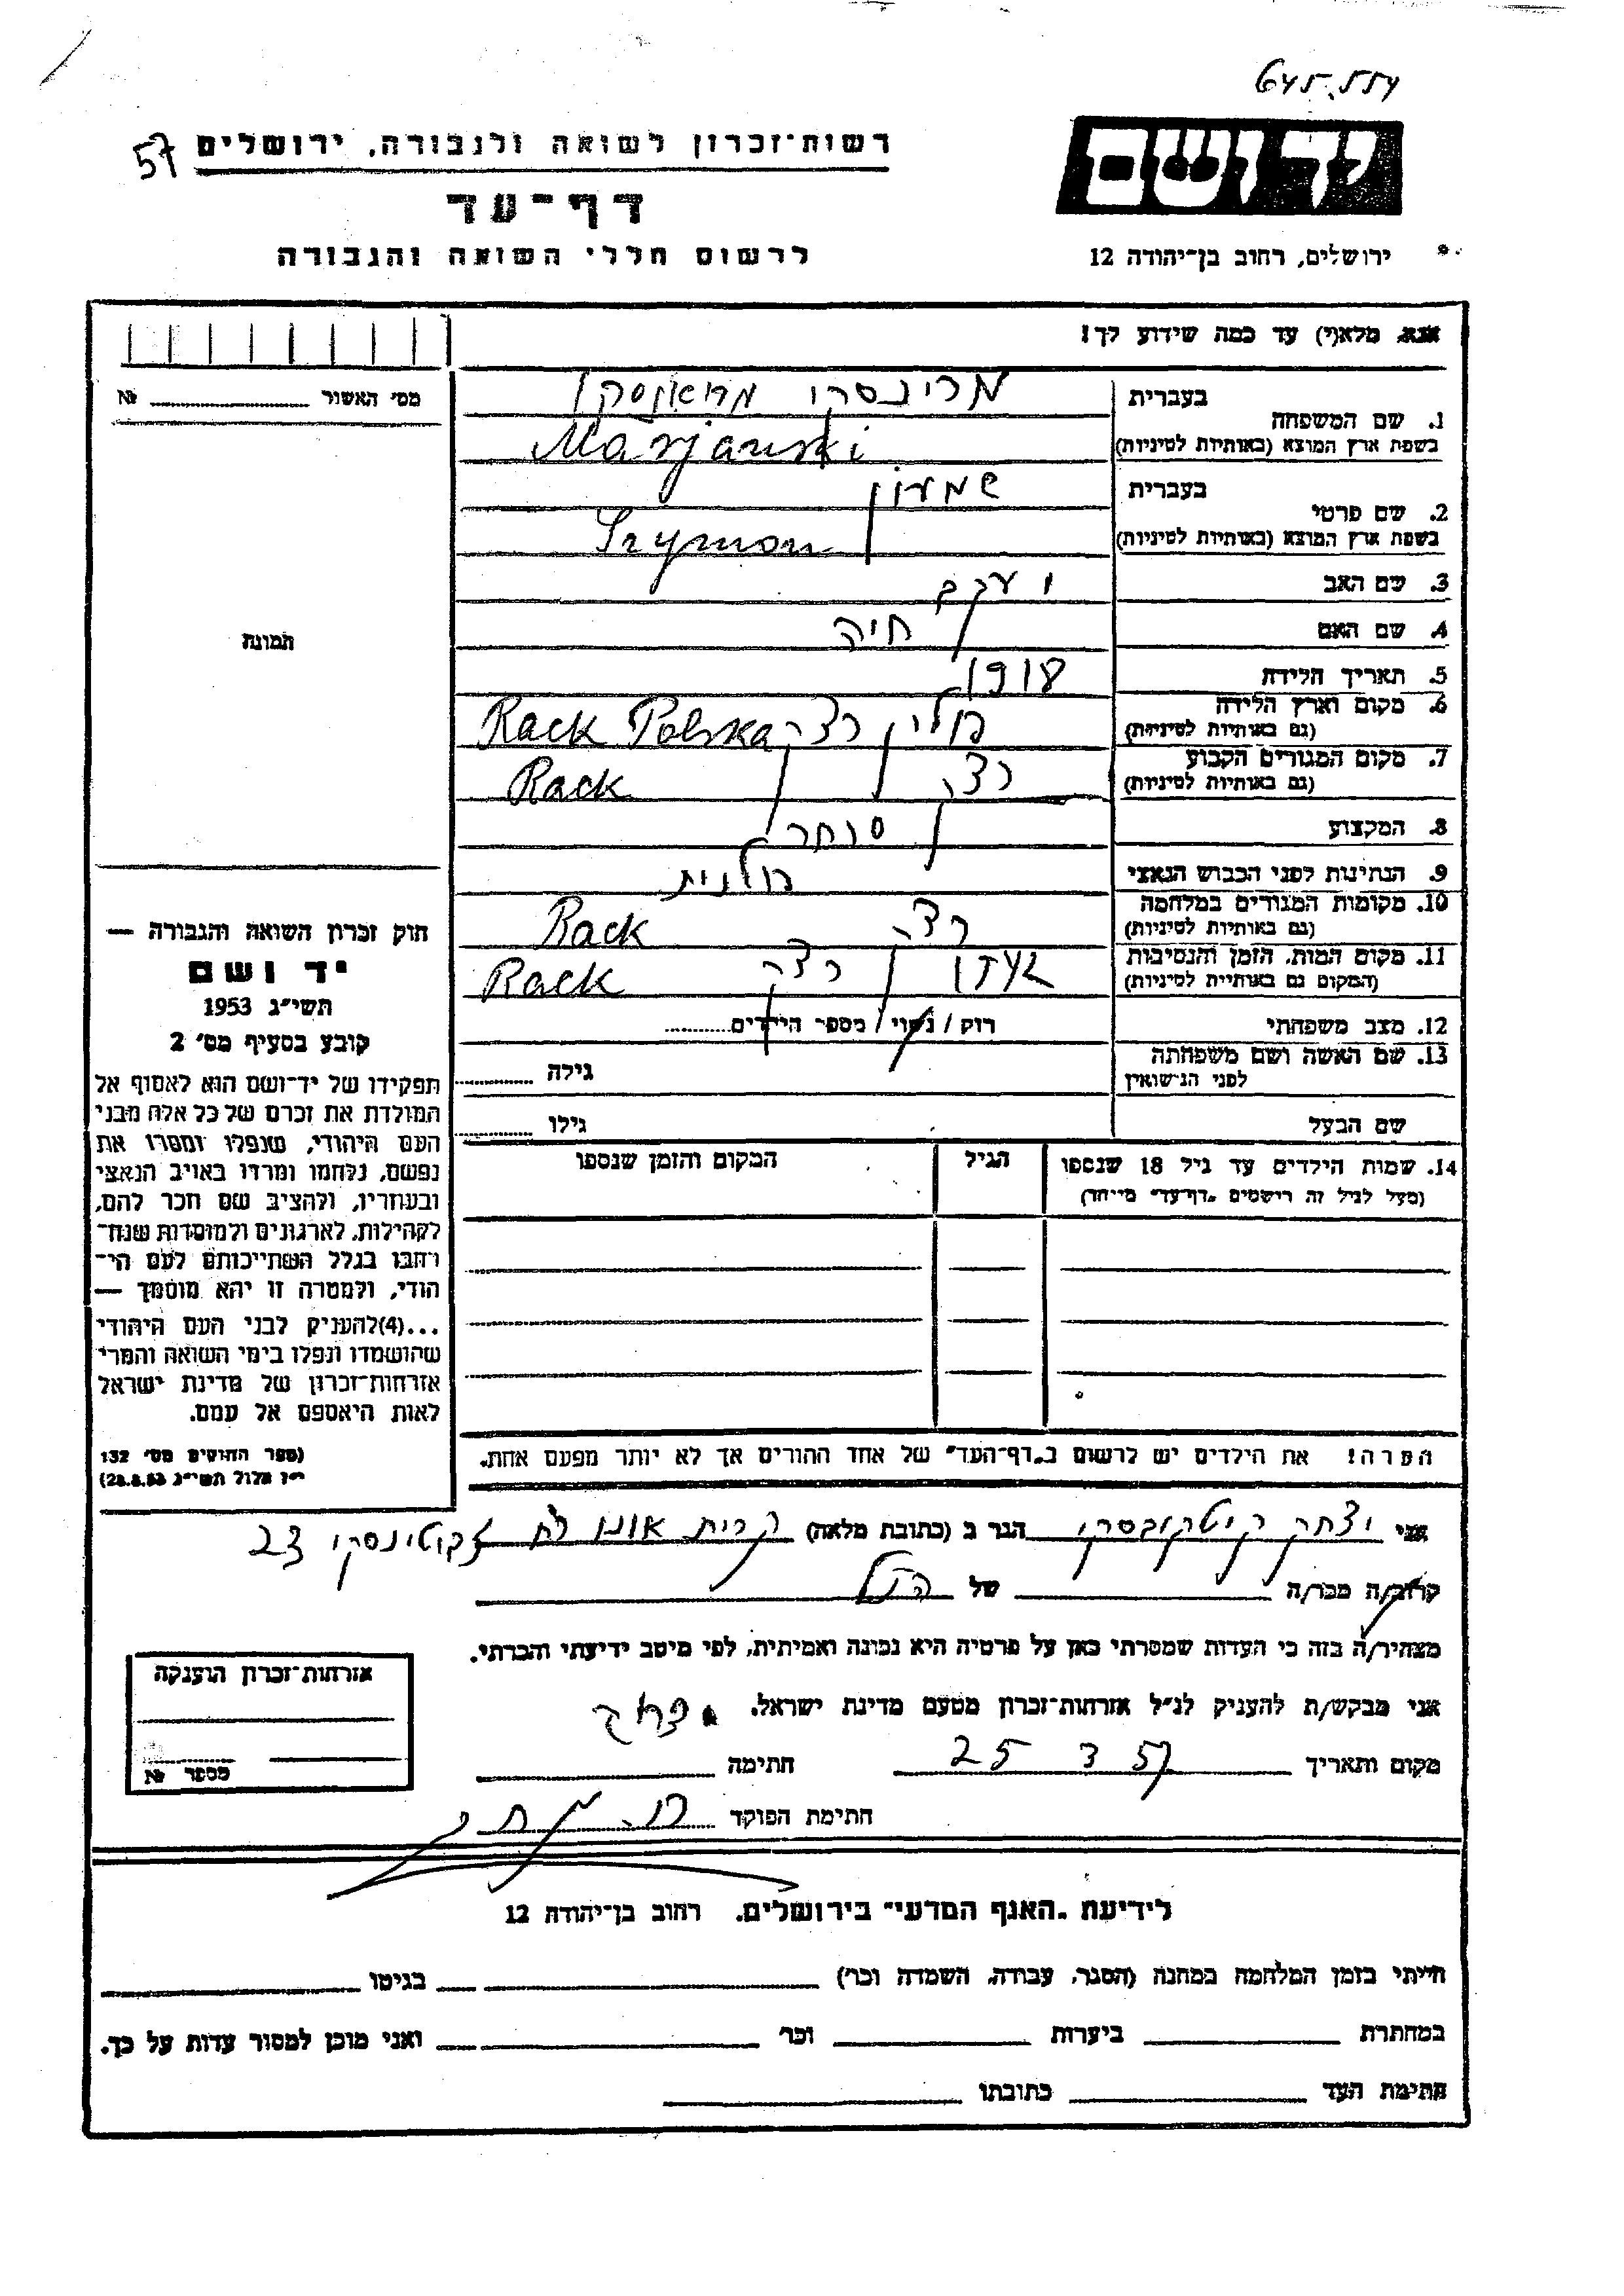 645.554
57
רשות־זכרון לשואה ולגבורה, ירושלים
יד ושם
דף־עד
לרשום חללי השואה והגבורה
ירושלים, רחוב בן־יהודה 12
אנא מלא(י) עד כמה שידוע לך!
מס׳ האשור № 
1. שם המשפחה בעברית מרינסקי
בשפת ארץ המוצא (באותיות לטיניות) Marjanski
2. שם פרטי בעברית שמעון
בשפת ארץ המוצא (באותיות לטיניות) Szymon
3. שם האב יעקב
4. שם האם חיה
5. תאריך הלידה 1918
6. מקום וארץ הלידה
(גם באותיות לטיניות) פולין Rack Polska
7. מקום המגורים הקבוע
(גם באותיות לטיניות) Rack
8. המקצוע סוחר
9. הנתינות לפני הכבוש הנאצי פולנית
10. מקומות המגורים במלחמה
(גם באותיות לטיניות) Rack
11. מקום המות, הזמן והנסיבות
(המקום גם באותיות לטיניות) Rack
12. מצב משפחתי רוק / נשוי / מספר הילדים
13. שם האשה ושם משפחתה
לפני הנישואין גילה
שם הבעל גילו
14. שמות הילדים עד גיל 18 שנספו הגיל המקום והזמן שנספו
(מעל לגיל זה רושמים "דף־עד" מיוחד)
הערה! את הילדים יש לרשום ב"דף־העד" של אחד ההורים אך לא יותר מפעם אחת.
תמונה
חוק זכרון השואה והגבורה —
יד ושם
תשי״ג 1953
קובע בסעיף מס׳ 2
תפקידו של יד־ושם הוא לאסוף אל
המולדת את זכרם של כל אלה מבני
העם היהודי, שנפלו ומסרו את
נפשם, נלחמו ומרדו באויב הנאצי
ובעוזריו, ולהציב שם וזכר להם,
לקהילות, לארגונים ולמוסדות שנח־
רבו בגלל השתייכותם לעם הי־
הודי, ולמטרה זו יהא מוסמך —
...(4)להעניק לבני העם היהודי
שהושמדו ונפלו בימי השואה והמרי
אזרחות־זכרון של מדינת ישראל
לאות היאספם אל עמם.
(ספר החוקים מס׳ 132
י״ז אלול תשי״ג 28.8.53)
אני יצחק קויטקובסקי הגר ב (כתובת מלאה) קרית אונו רח ז׳בוטינסקי 23
קרוב/ה מכר/ה של הנ״ל
מצהיר/ה בזה כי העדות שמסרתי כאן על פרטיה היא נכונה ואמיתית, לפי מיטב ידיעתי והכרתי.
אני מבקש/ת להעניק לנ״ל אזרחות־זכרון מטעם מדינת ישראל.
מקום ותאריך 25 3 57 חתימה
חתימת הפוקד
אזרחות־זכרון הוענקה
מספר №
לידיעת "האגף המדעי" בירושלים, רחוב בן־יהודה 12
הייתי בזמן המלחמה במחנה (הסגר, עבודה, השמדה וכו׳) בגיטו
במחתרת ביערות וכו׳ ואני מוכן למסור עדות על כך.
חתימת העד כתובתו